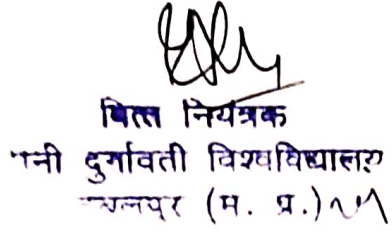 वित्त नियंत्रक
नी दुर्गावती विश्वविद्यालय
लपुर (म. प्र.)